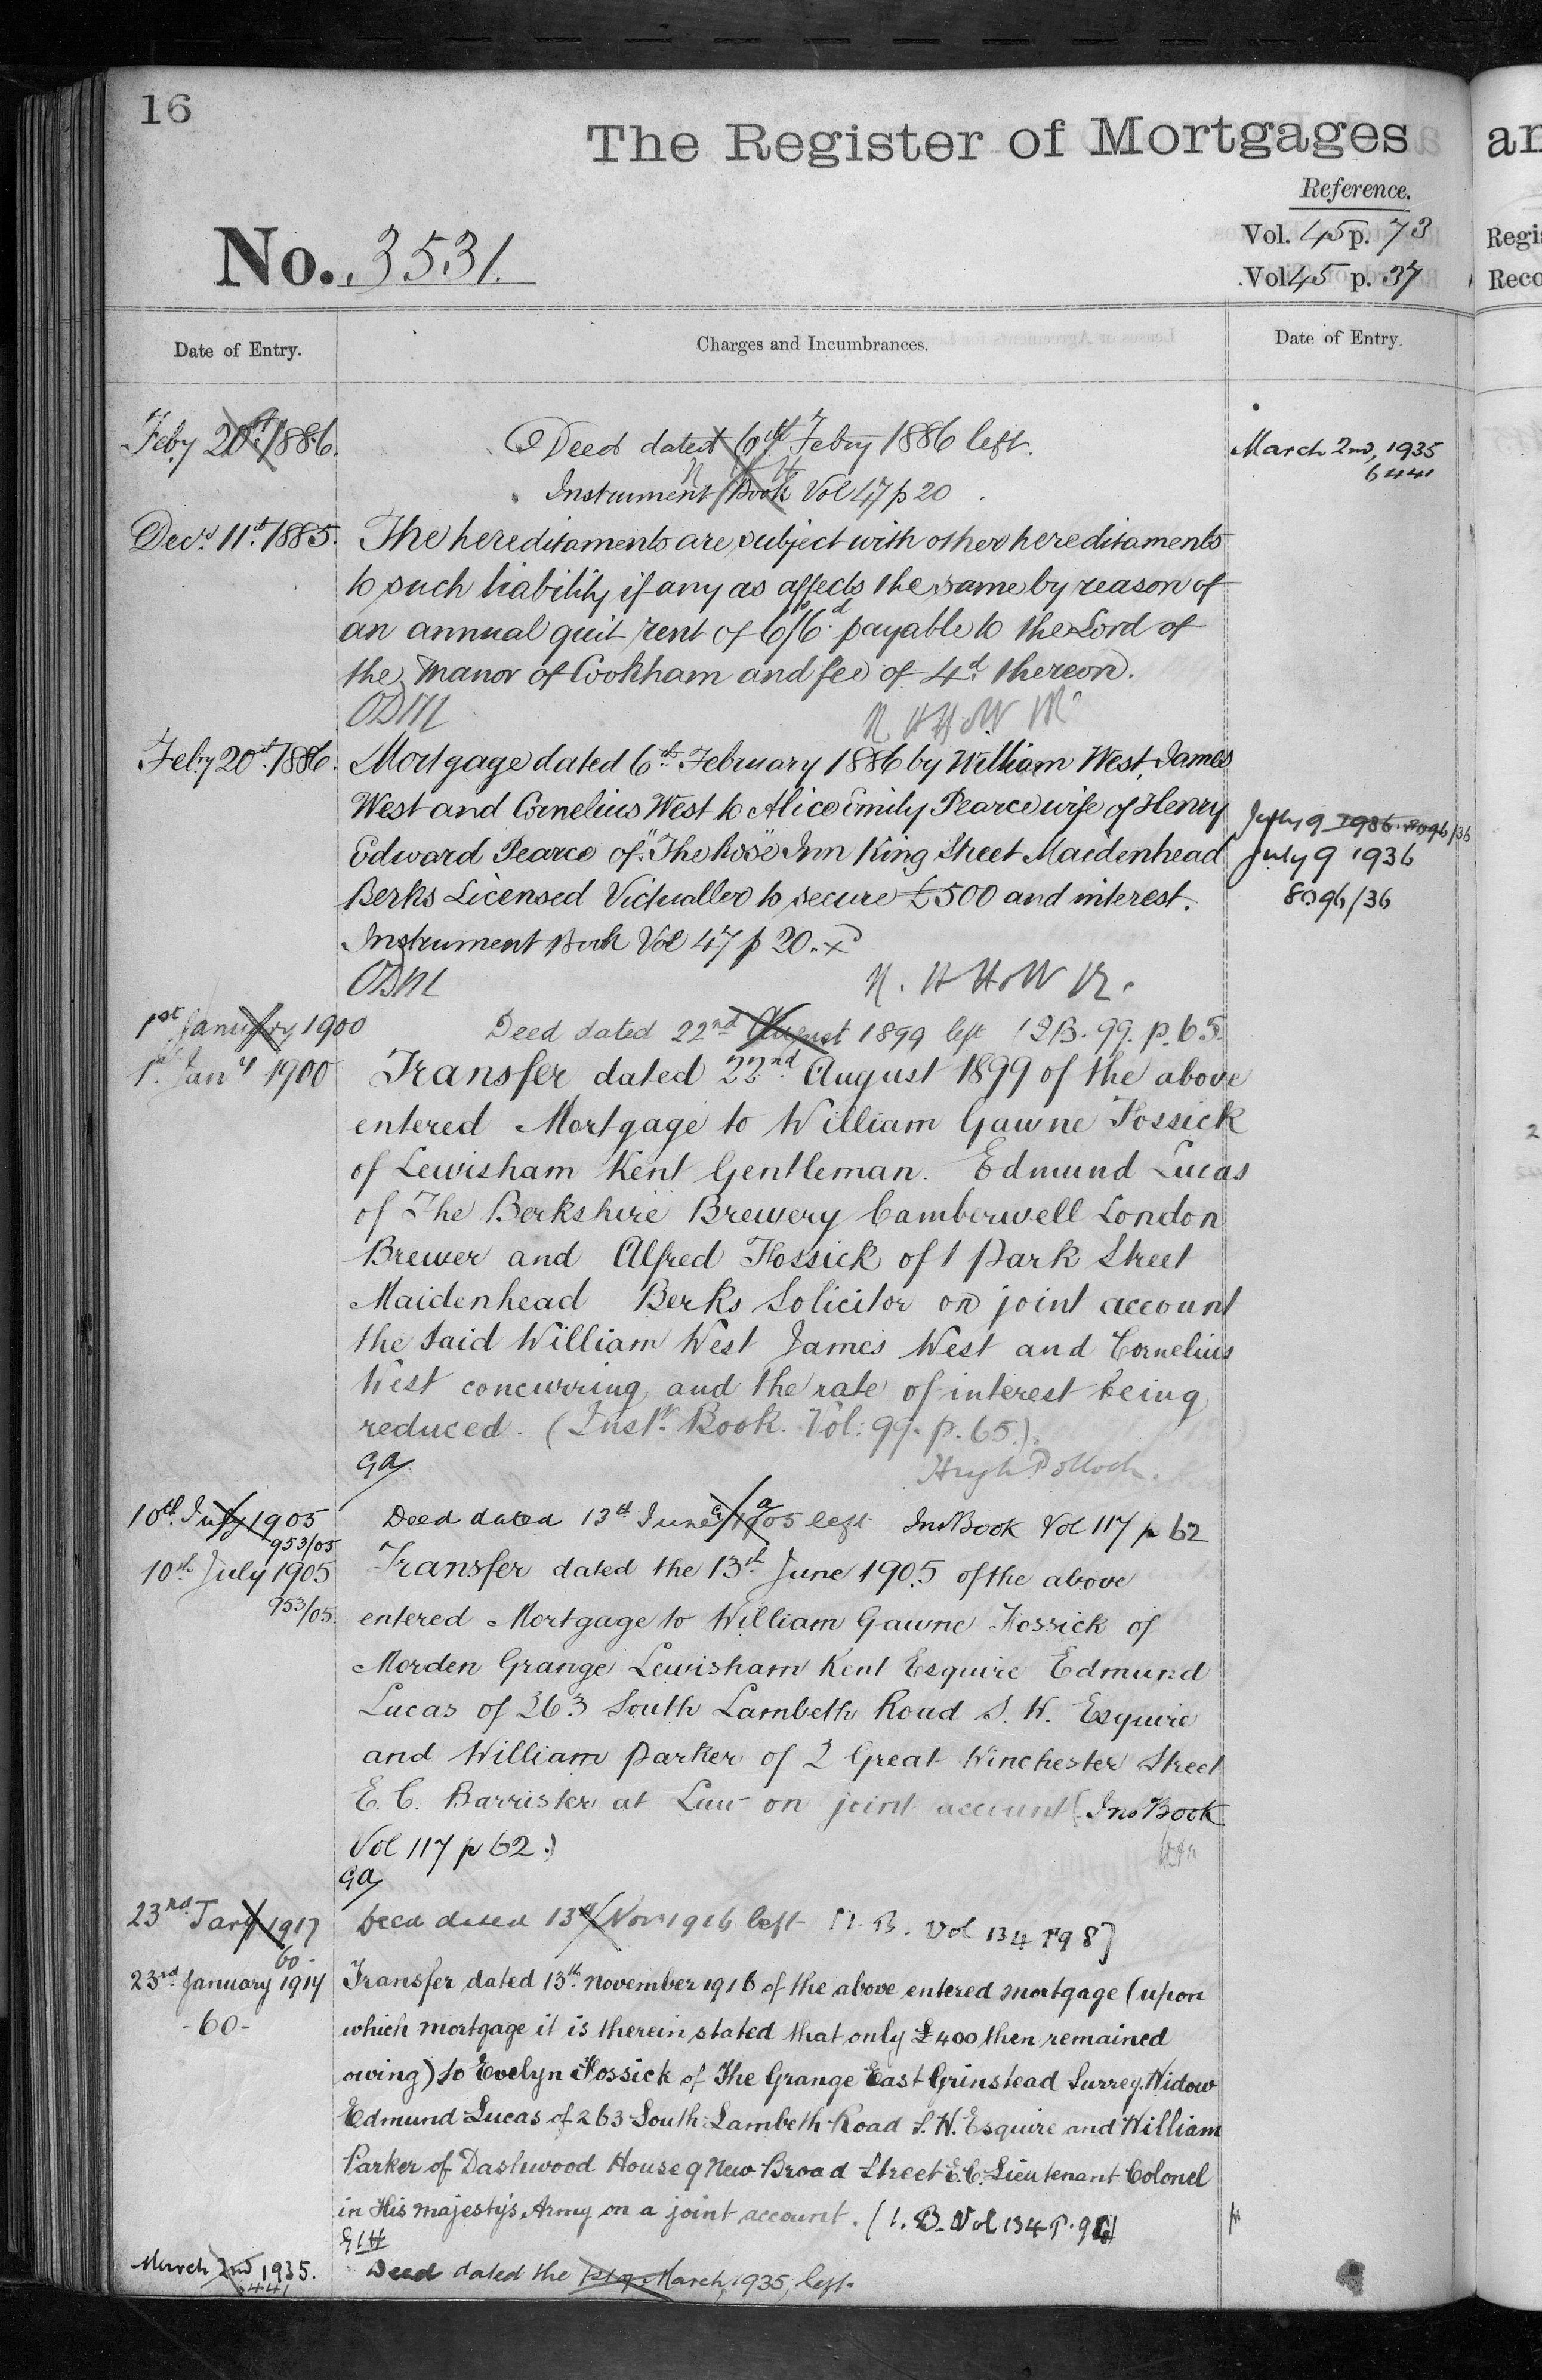 16
The Register of Mortgages
Reference.
No. 3531.
Vol. 45 p. 73
Vol 45 p. 37
Regis
Reco
Date of Entry.
Charges and Incumbrances.
Date of Entry.
Feby 20th 1886.
A Deed dated 6th Febry 1886 left.
Instrument Book Vol 47 p 20
March 2nd, 1935
6441
Decr. 11th 1885.
The hereditaments are subject with other hereditaments
to such liability if any as affects the same by reason of
an annual quit rent of 6s/6d. payable to the Lord of
the Manor of Cookham and fee of 4d. thereon.
Feby 20th 1886.
Mortgage dated 6th February 1886 by William West, James
West and Cornelius West to Alice Emily Pearce wife of Henry
Edward Pearce of "The Rose" Inn King Street Maidenhead
Berks Licensed Victualler to secure £500 and interest.
Instrument Book Vol 47 p 20.
July 9 1936 8096/36
July 9 1936
8096/36
1st January 1900
Deed dated 22nd August 1899 left (I.B. 99. p. 65.
1st Jany 1900
Transfer dated 22nd August 1899 of the above
entered Mortgage to William Gawne Fossick
of Lewisham Kent Gentleman. Edmund Lucas
of The Berkshire Brewery Camberwell London
Brewer and Alfred Fossick of 1 Park Street
Maidenhead Berks Solicitor on joint account
the said William West James West and Cornelius
West concurring and the rate of interest being
reduced. (Inst. Book. Vol: 99. p. 65.)
GA
Hugh Pollock.
10th July 1905
953/05
Deed dated 13th June 1905 left Ins Book Vol 117 p 62
10th July 1905
953/05.
Transfer dated the 13th June 1905 of the above
entered Mortgage to William Gawne Fossick of
Morden Grange Lewisham Kent Esquire Edmund
Lucas of 263 South Lambeth Road S. W. Esquire
and William Parker of 2 Great Winchester Street
E. C. Barrister at Law on joint account (Ins Book
Vol 117 p 62.)
GA
23rd Jany 1917
60-
Deed dated 13th Novr 1916 left I. B. Vol 134 P 98]
23rd January 1917
-60-
Transfer dated 13th November 1916 of the above entered mortgage (upon
which mortgage it is therein stated that only £400 then remained
owing) to Evelyn Fossick of The Grange East Grinstead Surrey Widow
Edmund Lucas of 263 South Lambeth Road S. W. Esquire and William
Parker of Dashwood House 9 New Broad Street E.C. Lieutenant Colonel
in His Majesty's Army on a joint account. (I. B. Vol 134 P.
March 2nd 1935.
Deed dated the 1st of March, 1935, left.